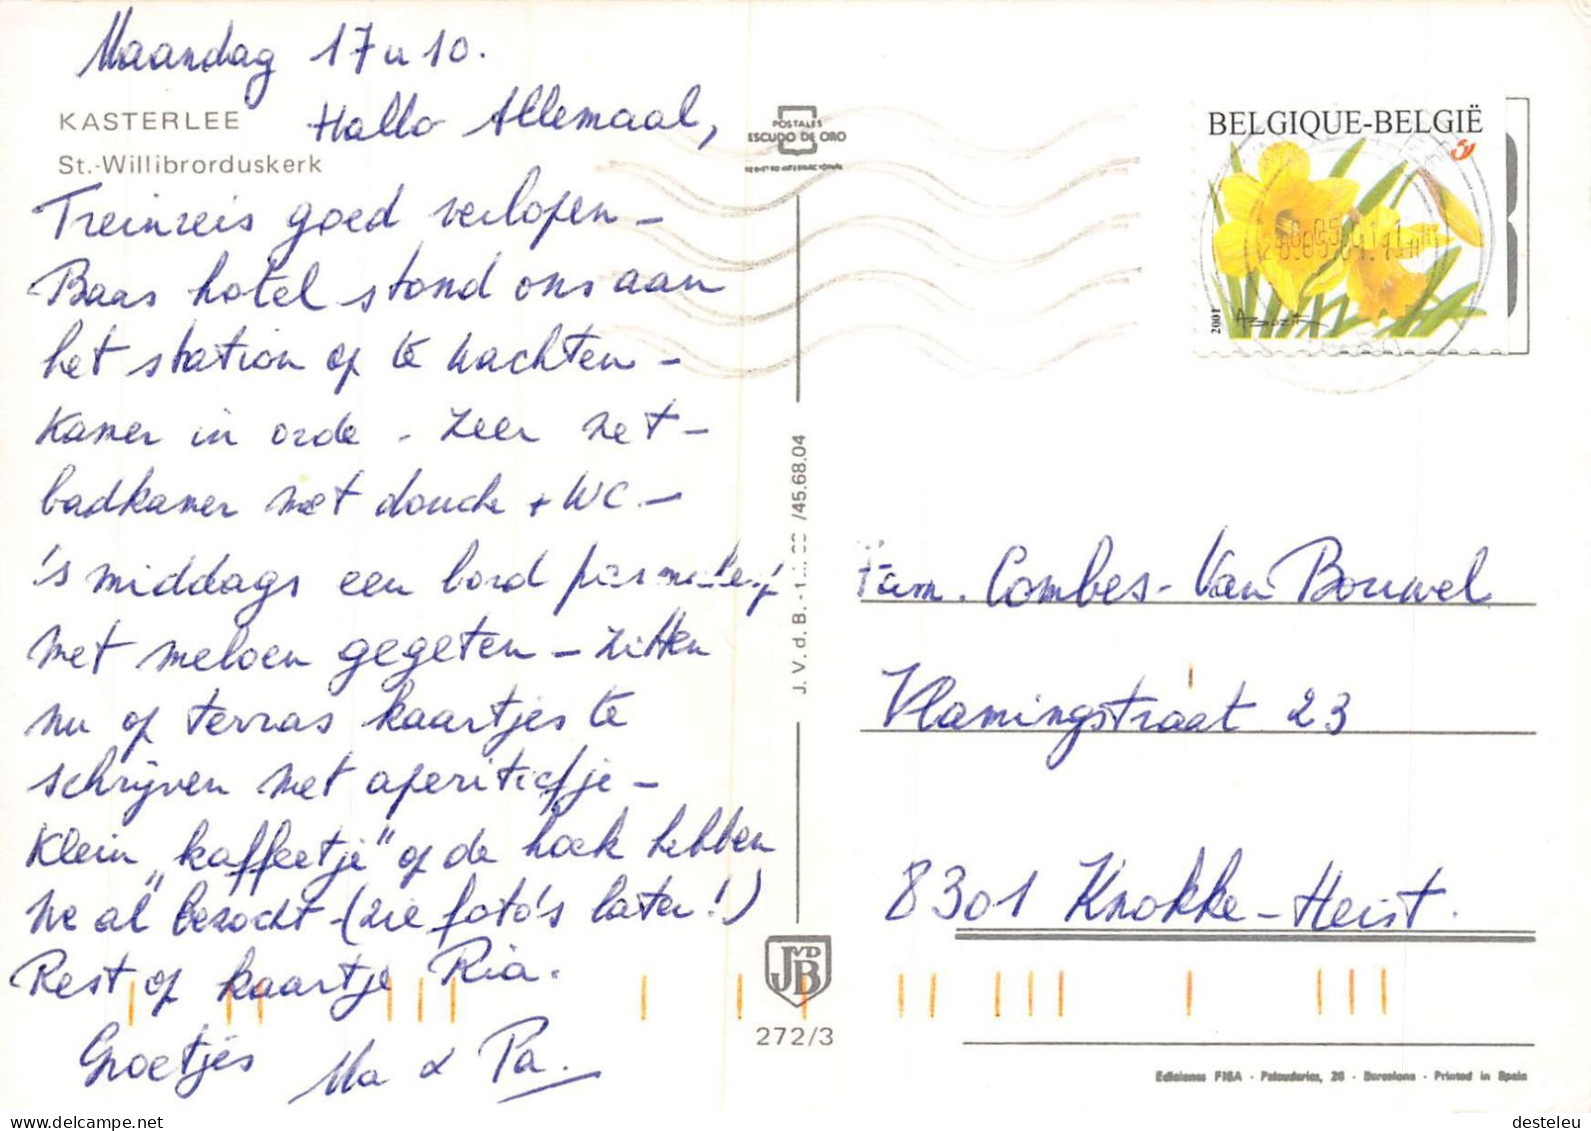 Maandag 17u10.
Hallo Allemaal,
KASTERLEE
St.-Willibrorduskerk
Treinreis goed verlopen –
Baas hotel stond ons aan
het station op te wachten –
Kamer in orde - zeer net –
badkamer met douche + WC –
's middags een bord
met meloen gegeten – zitten
nu op terras kaartjes te
schrijven met aperitiefje –
Klein „kaffeetje" op de hoek hebben
we al bezocht – (zie foto's later!)
Rest op kaartje Ria.
Groetjes Ma & Pa.
POSTALES
ESCUDO DE ORO
J. V. d. B. - /45.68.04
JVDB
272/3
BELGIQUE-BELGIË
2001
Fam. Combes - Van Bouwel
Vlamingstraat 23
8301 Knokke - Heist.
Ediciones FISA - Palaudarias, 26 - Barcelona - Printed in Spain
desteleu